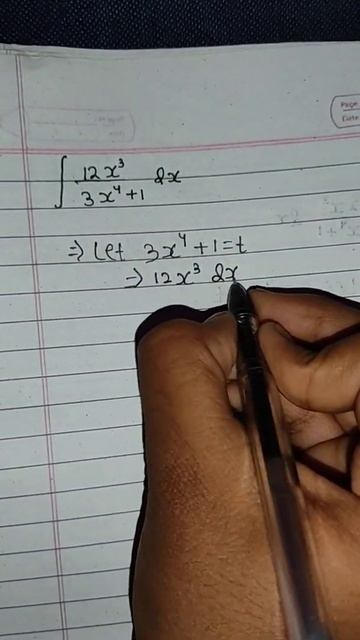 Page
Date
∫ 12x³ / 3x⁴+1 dx
⇒ Let 3x⁴+1=t
⇒ 12x³ dx